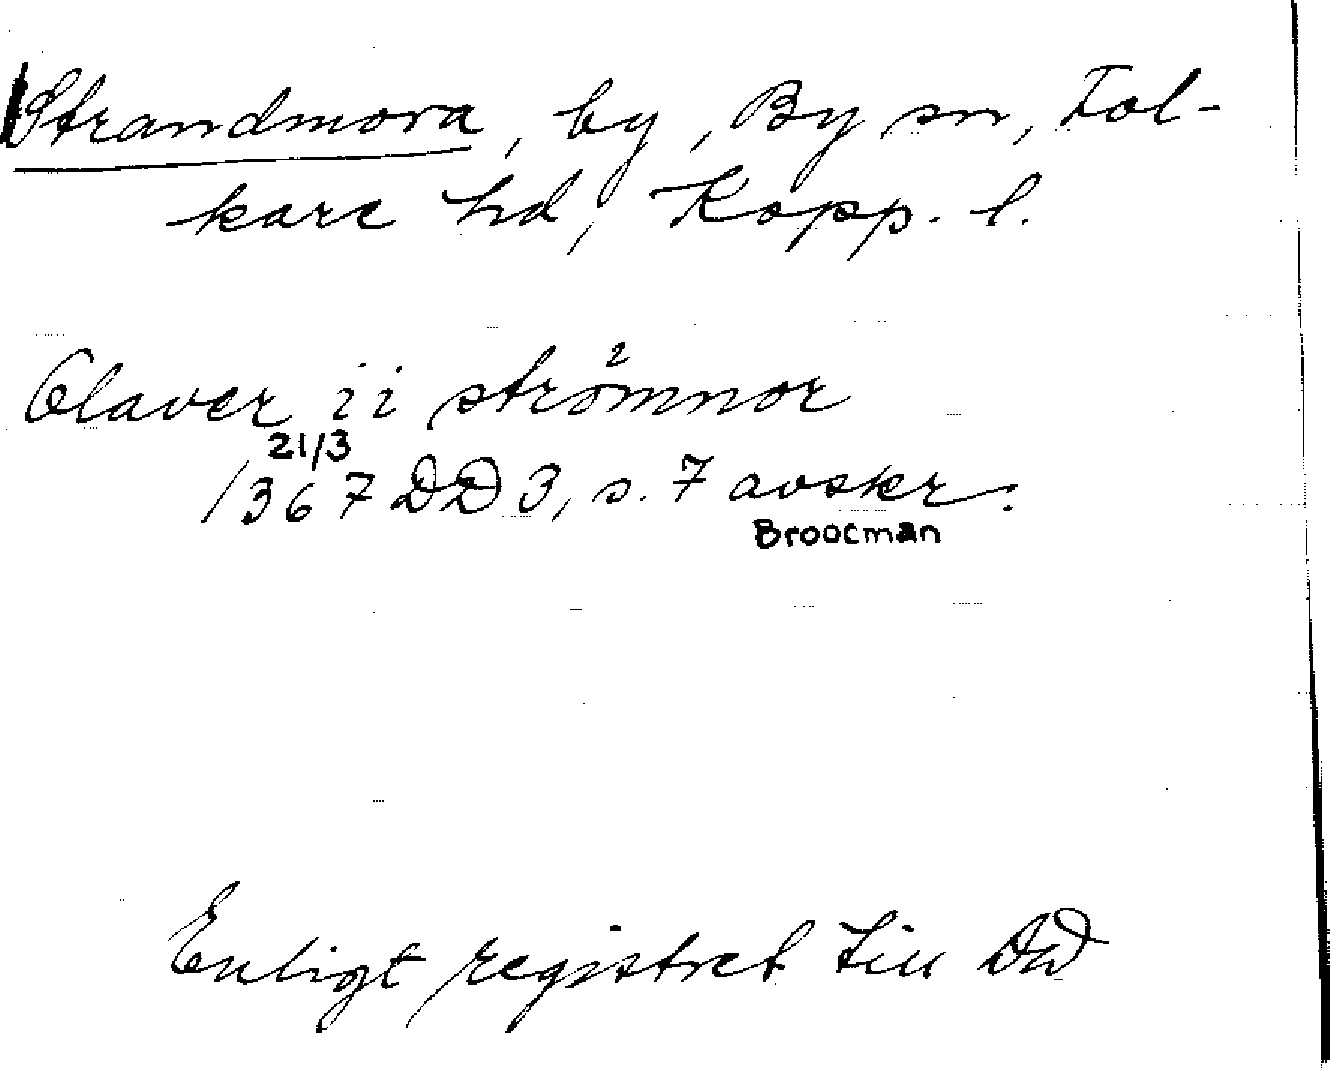 Strandmora, by, By sn, Fol-
kare hd, Kopp. l.
Olaver ii strömnor
21/3
1367 DD 3, s. 7 avskr.
Broocman
Enligt registret till DD